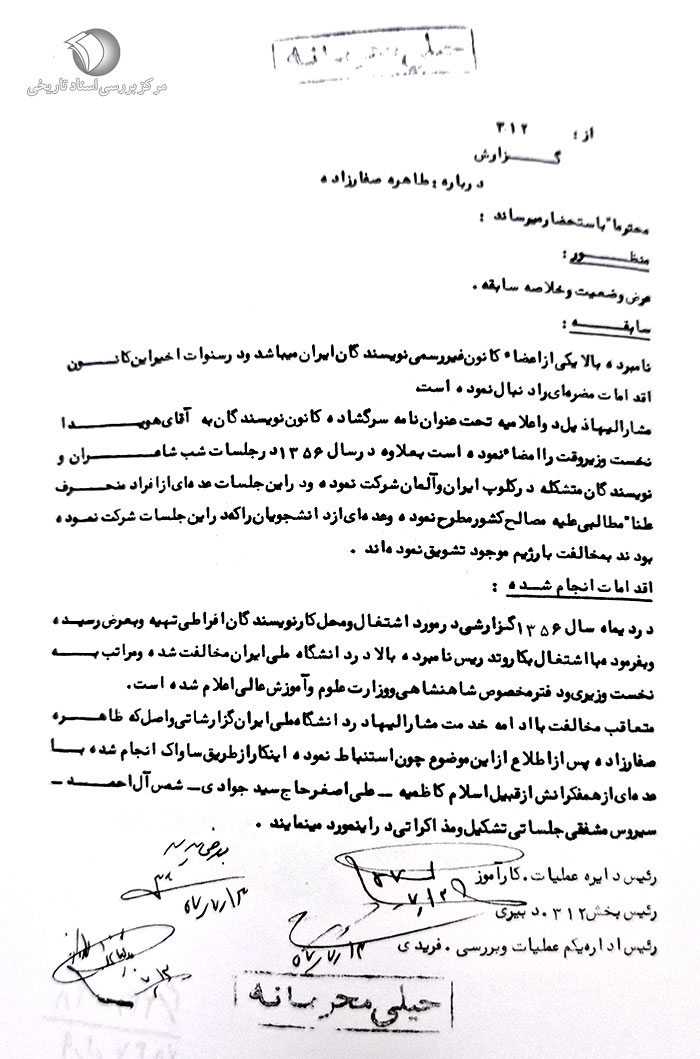 مرکز بررسی اسناد تاریخی
خیلی محرمانه
از : ۳۱۲
گزارش
درباره : طاهره صفارزاده
محترما" باستحضار میرساند :
منظور :
عرض وضعیت و خلاصه سابقه .
سابقه :
نامبرده بالا یکی از اعضاء کانون غیررسمی نویسندگان ایران میباشد و در سنوات اخیر این کانون
اقدامات مضره‌ای را دنبال نموده است
مشارالیها ذیل دو اعلامیه تحت عنوان نامه سرگشاده کانون نویسندگان به آقای هویدا
نخست وزیر وقت را امضاء نموده است بعلاوه در سال ۱۳۵۶ در جلسات شب شاعران و
نویسندگان متشکله در کلوپ ایران و آلمان شرکت نموده و در این جلسات عده‌ای از افراد منحرف
علنا" مطالبی علیه مصالح کشور مطرح نموده و عده‌ای از دانشجویان را که در این جلسات شرکت نموده
بودند بمخالفت با رژیم موجود تشویق نموده‌اند .
اقدامات انجام شده :
در دیماه سال ۱۳۵۶ گزارشی در مورد اشتغال و محل کار نویسندگان افراطی تهیه و بعرض رسیده
و بفرموده با اشتغال بکار و تدریس نامبرده بالا در دانشگاه ملی ایران مخالفت شده و مراتب به
نخست وزیری و دفتر مخصوص شاهنشاهی و وزارت علوم و آموزش عالی اعلام شده است.
متعاقب مخالفت با ادامه خدمت مشارالیها در دانشگاه ملی ایران گزارشاتی واصل که طاهره
صفارزاده پس از اطلاع از این موضوع چون استنباط نموده اینکار از طریق ساواک انجام شده با
عده‌ای از همفکرانش از قبیل اسلام کاظمیه ـ علی اصغر حاج سید جوادی ـ شمس آل احمد ـ
سیروس مشفقی جلساتی تشکیل و مذاکراتی در اینمورد مینمایند .
رئیس دایره عملیات . کارآموز
رئیس بخش ۳۱۲ . دبیری
رئیس اداره یکم عملیات و بررسی . فریدی
بعرض رسید
۵۷/۷/۱۳
۵۷/۷/۱۳
خیلی محرمانه